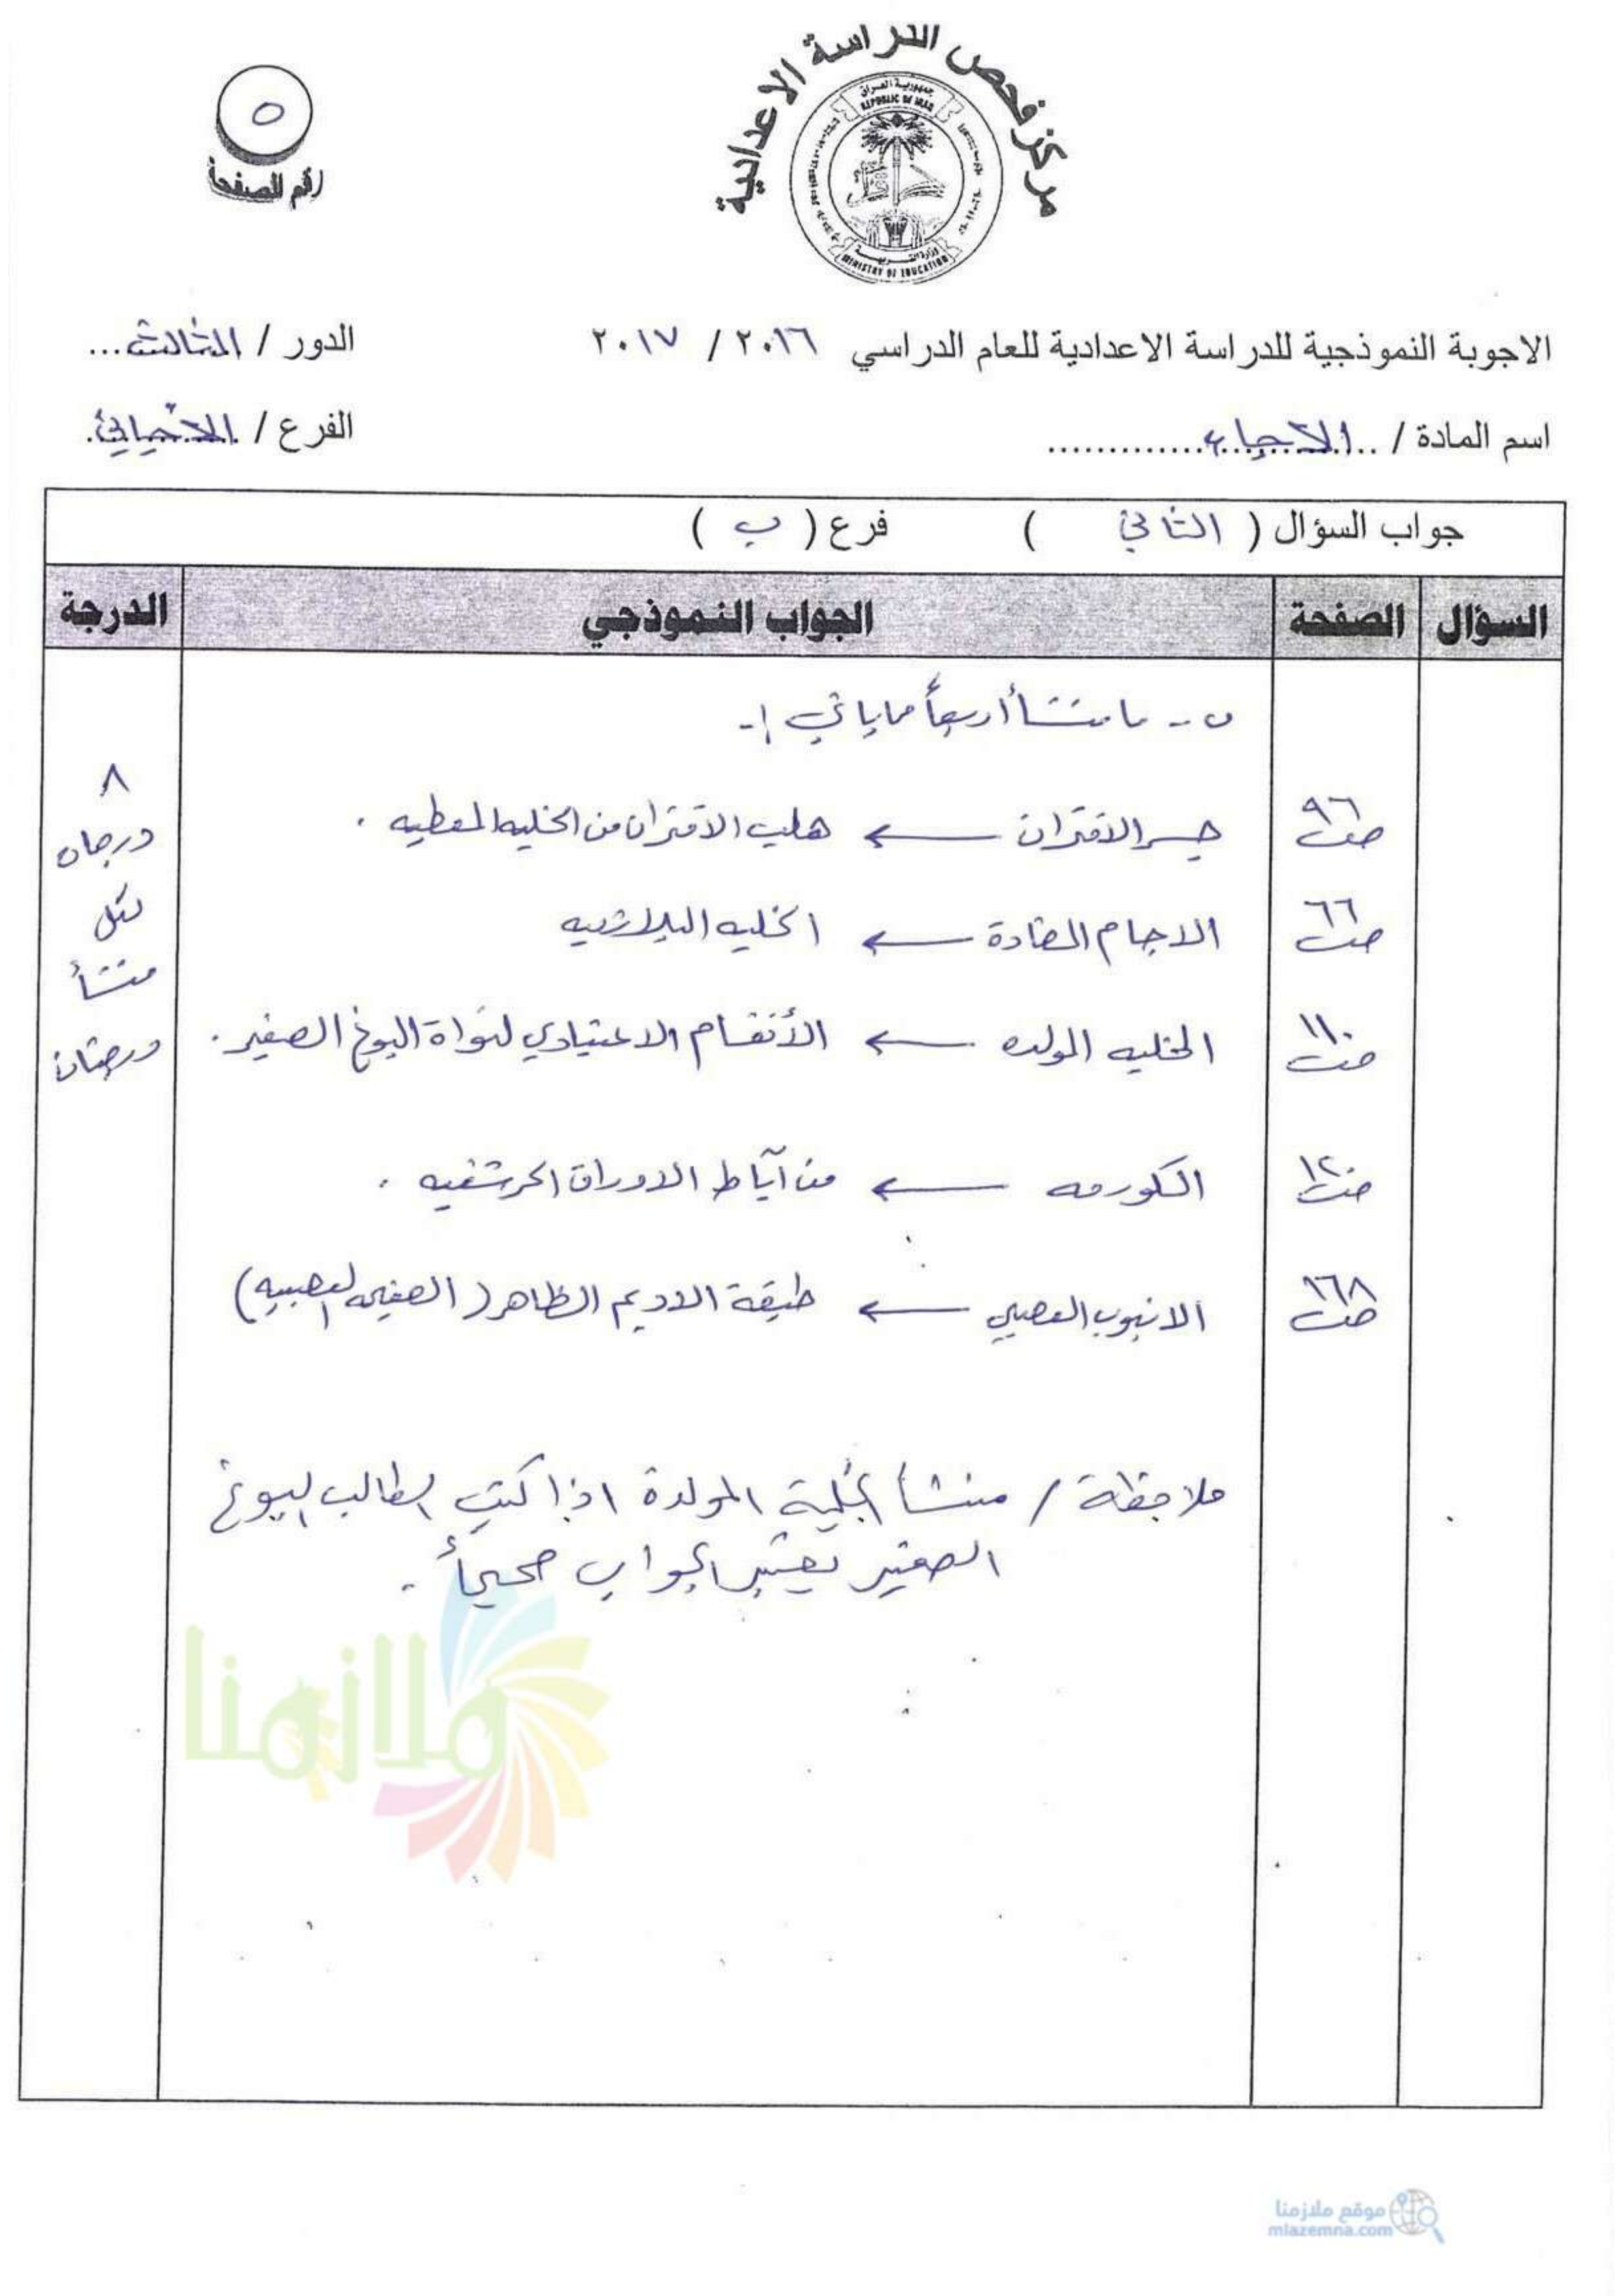 مركز فحص الدراسة الاعدادية
جمهورية العراق
REPUBLIC OF IRAQ
وزارة التربية
MINISTRY OF EDUCATION
٥
رقم الصفحة
الاجوبة النموذجية للدراسة الاعدادية للعام الدراسي ٢٠١٦ / ٢٠١٧
الدور / الثالث...
اسم المادة / ..الاحياء.............
الفرع / الاحيائي.
جواب السؤال ( الثاني ) فرع ( ب )
السؤال الصفحة الجواب النموذجي الدرجة
ب - ما منشأ أربعاً مما ياتي :-
ص٩٦ جسر الاقتران ← هلب الاقتران من الخليه المعطيه .
ص٦٦ الاجسام المضادة ← الخليه البلازميه
ص١١٠ الخليه المولده ← الأنقسام الاعتيادي لنواة البوغ الصغير .
ص١٢٠ الكورمه ← من آباط الاوراق الحرشفيه .
ص١٦٨ الانبوب العصبي ← طبقة الاديم الظاهر ( الصفيحه العصبيه )
٨
درجات
لكل
منشأ
درجتان
ملاحظة / منشأ الخلية المولدة اذا كتب الطالب البوغ
الصغير يعتبر الجواب صحيحاً .
ملازمنا
موقع ملازمنا
mlazemna.com